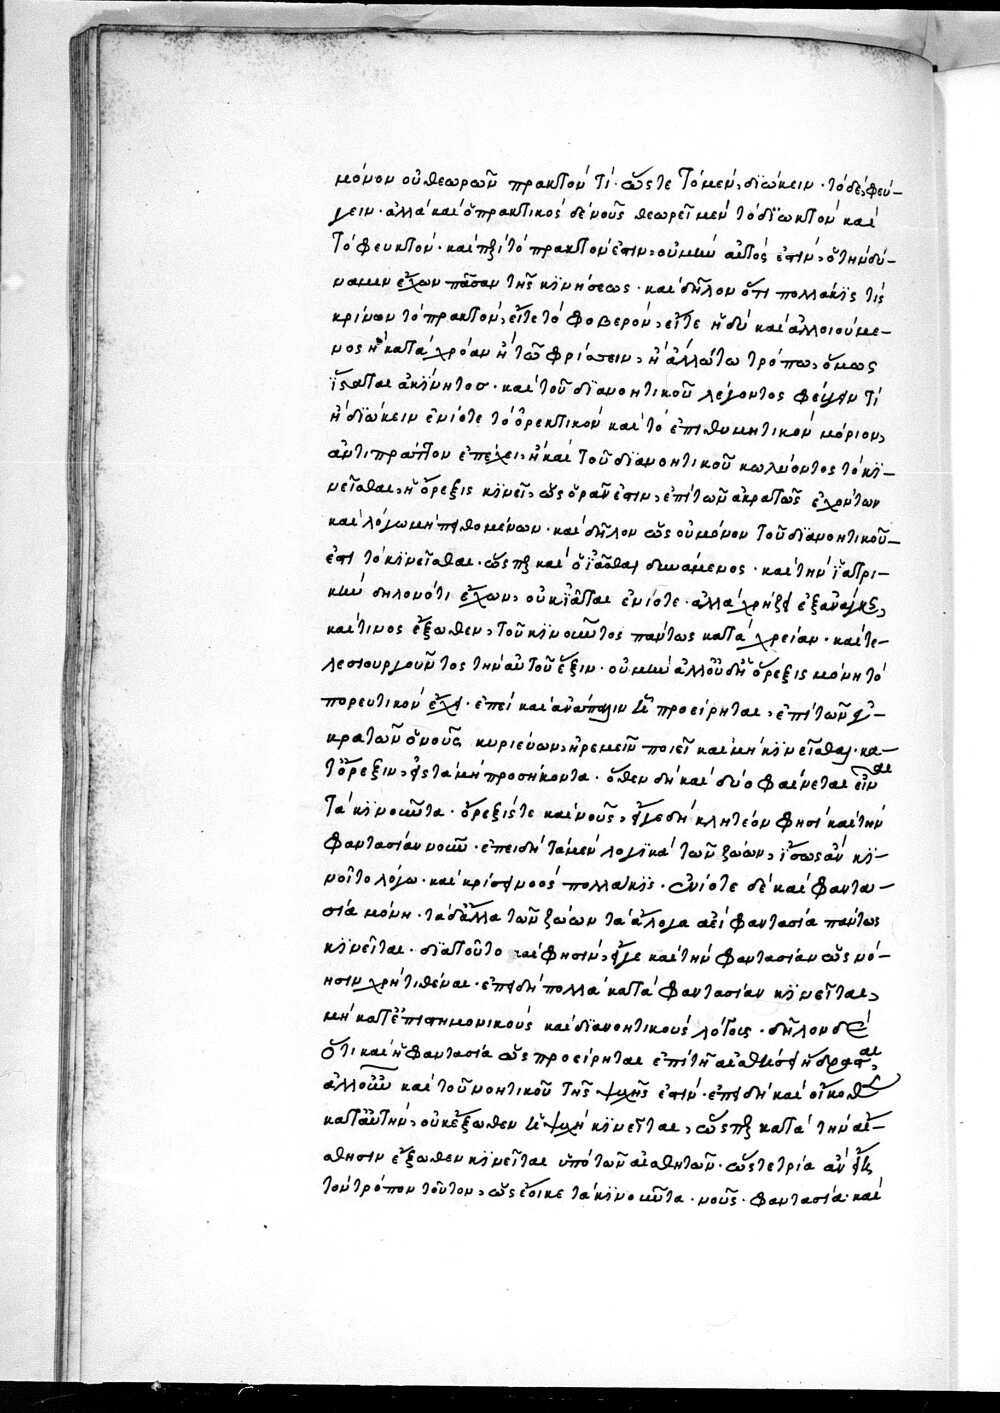 μόνον οὐ θεωρῶν πρακτόν τί· ὥστε τὸ μέν, διώκειν· τὸ δέ, φεύ-
γειν· ἀλλὰ καὶ ὁ πρακτικὸς δὲ νοῦς θεωρεῖ μὲν τὸ διωκτὸν καὶ
τὸ φευκτόν· καὶ περὶ τὸ πρακτόν ἐστιν, οὐ μὴν αὐτός ἐστιν, ὁ τὴν δύ-
ναμιν ἔχων πᾶσαν τῆς κινήσεως· καὶ δῆλον ὅτι πολλάκις τίς
κρίνων τὸ πρακτόν, εἴτε τὸ φοβερόν, εἴτε ἡδὺ καὶ ἀλλοιούμε-
νος ἢ κατὰ χρόαν ἢ τῷ φρίσσειν, ἢ ἄλλῳ τῳ τρόπῳ, ὅμως
ἵσταται ἀκίνητος· καὶ τοῦ διανοητικοῦ λέγοντος φεύγειν τί
ἢ διώκειν ἐνίοτε τὸ ὀρεκτικὸν καὶ τὸ ἐπιθυμητικὸν μόριον,
ἀντιπρᾶττον ἐπέχει, ἢ καὶ τοῦ διανοητικοῦ κωλύοντος τὸ κι-
νεῖσθαι, ἡ ὄρεξις κινεῖ, ὡς ὁρᾶν ἔστιν, ἐπὶ τῶν ἀκρατῶς ἐχόντων
καὶ λόγῳ μὴ πειθομένων· καὶ δῆλον ὡς οὐ μόνον τοῦ διανοητικοῦ
ἐστὶ τὸ κινεῖσθαι· ὥσπερ καὶ ὁ ἰᾶσθαι δυνάμενος· καὶ τὴν ἰατρι-
κὴν δηλονότι ἔχων, οὐκ ἰᾶται ἐνίοτε· ἀλλὰ χρήζει ἐξανάγκης,
καὶ τινὸς ἔξωθεν, τοῦ κινοῦντος πάντως κατὰ χρείαν· καὶ τε-
λεσιουργοῦντος τὴν αὐτοῦ ἕξιν· οὐ μὴν ἀλλ' οὐδὲ ὄρεξις μόνη τὸ
πορευτικὸν ἔχει· ἐπεὶ καὶ ἀνάπαλιν ὡς προείρηται, ἐπὶ τῶν ἐγ-
κρατῶν ὁ νοῦς κυριεύων, ἠρεμεῖν ποιεῖ καὶ μὴ κινεῖσθαι· κα-
τ' ὄρεξιν, εἰς τὰ μὴ προσήκοντα· ὅθεν δὴ καὶ δύο φαίνεται εἶναι
τὰ κινοῦντα· ὄρεξίς τε καὶ νοῦς, εἴγε δὴ κλητέον φησὶ καὶ τὴν
φαντασίαν νοῦν· ἐπειδὴ τὰ μὲν λογικὰ τῶν ζώων, ἴσως ἂν κι-
νοῖτο λόγῳ· καὶ κρίσει νοὸς πολλάκις· ἐνίοτε δὲ καὶ φαντα-
σίᾳ μόνῃ· τὰ δ' ἄλλα τῶν ζώων τὰ ἄλογα ἀεὶ φαντασίᾳ πάντως
κινεῖται· διατοῦτο καί φησιν, εἴγε καὶ τὴν φαντασίαν ὡς νό-
ησιν χρὴ τιθέναι· ἐπειδὴ πολλὰ κατὰ φαντασίαν κινεῖται,
μὴ κατ' ἐπιστημονικοὺς καὶ διανοητικοὺς λόγους· δῆλον δὲ
ὅτι καὶ ἡ φαντασία ὡς προείρηται ἐπὶ τῇ αἰσθήσει ἥδρασται,
ἀλλ' οὖν καὶ τοῦ νοητικοῦ τῆς ψυχῆς ἐστιν· ἐπειδὴ καὶ οἴκοθεν
κατ' αὐτήν, οὐκ ἔξωθεν ἡ ψυχὴ κινεῖται, ὥσπερ κατὰ τὴν αἴ-
σθησιν ἔξωθεν κινεῖται ὑπὸ τῶν αἰσθητῶν· ὥστε τρία ἂν εἴη
τὸν τρόπον τοῦτον, ὡς ἔοικε τὰ κινοῦντα· νοῦς· φαντασία· καὶ